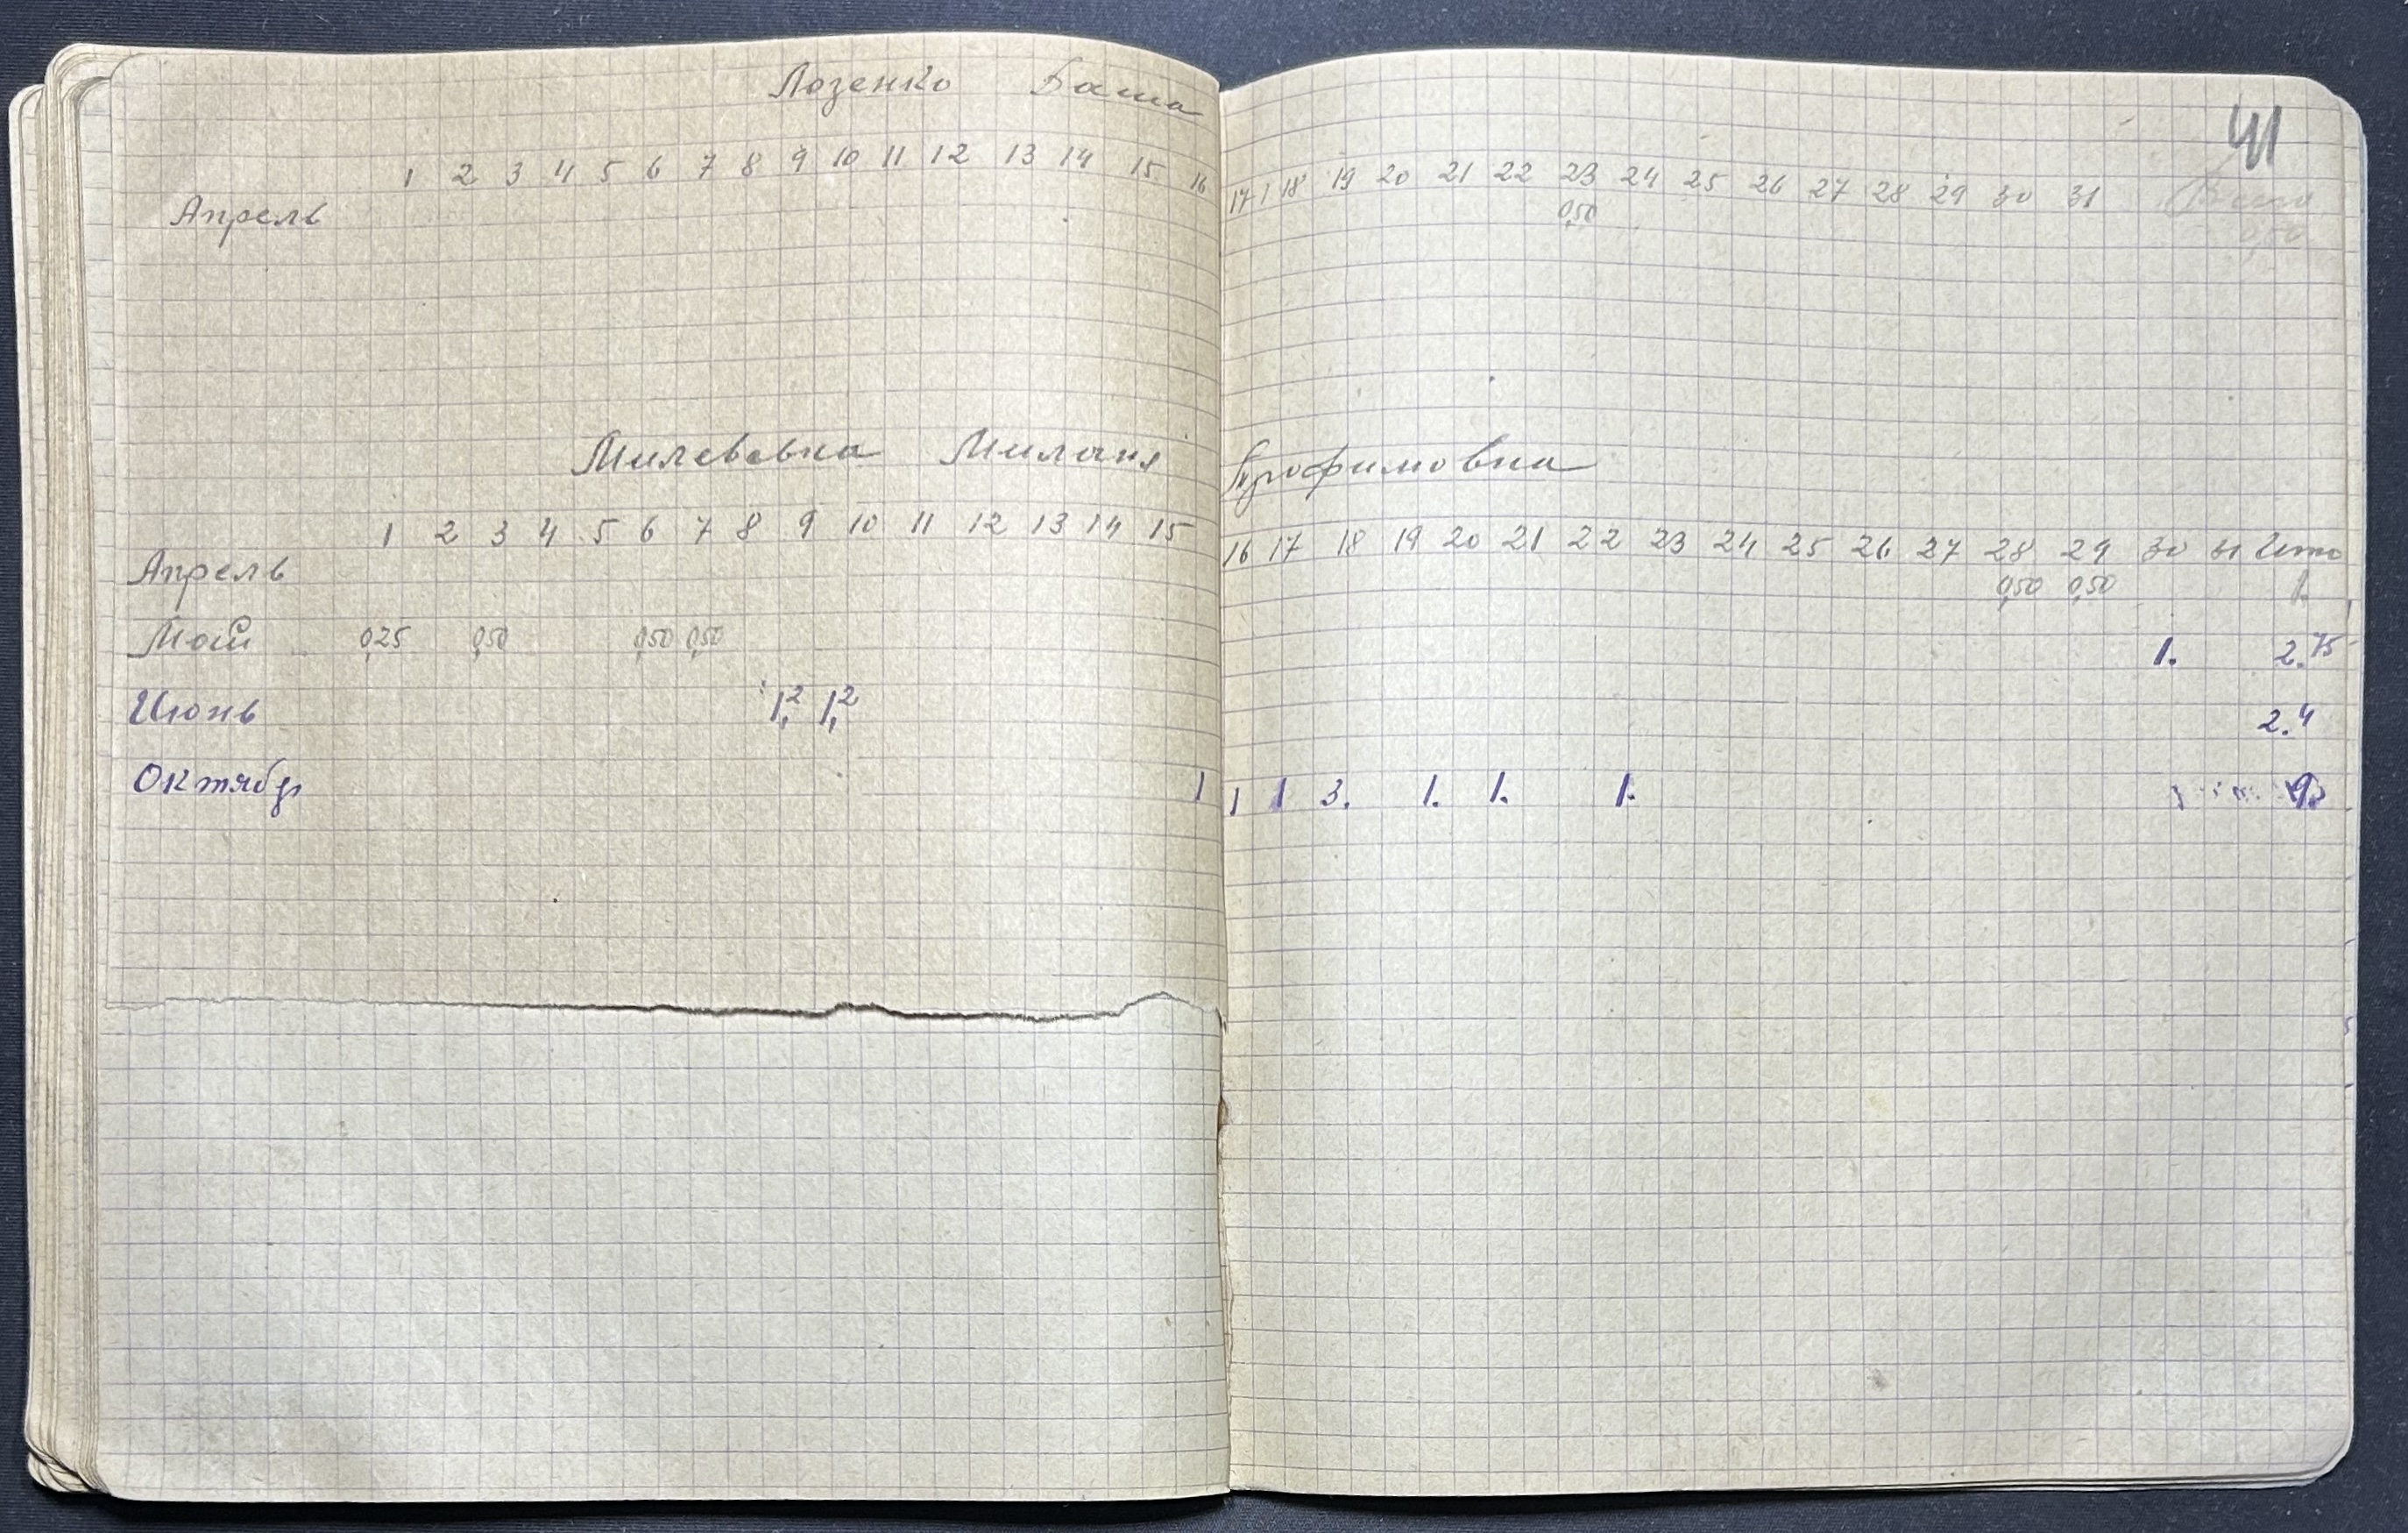 41
Лозенко Ваша
1 2 3 4 5 6 7 8 9 10 11 12 13 14 15 16 17 18 19 20 21 22 23 24 25 26 27 28 29 30 31 Всего
Апрель 0,50 0,50
Милевовка Миланя Трофимовна
1 2 3 4 5 6 7 8 9 10 11 12 13 14 15 16 17 18 19 20 21 22 23 24 25 26 27 28 29 30 31 Итго
Апрель 0,50 0,50 1.
Май 0,25 0,50 0,50 0,50 1. 2.75
Июнь 1,2 1,2 2.4
Октябрь 1 1 1 3. 1. 1. 1. 9